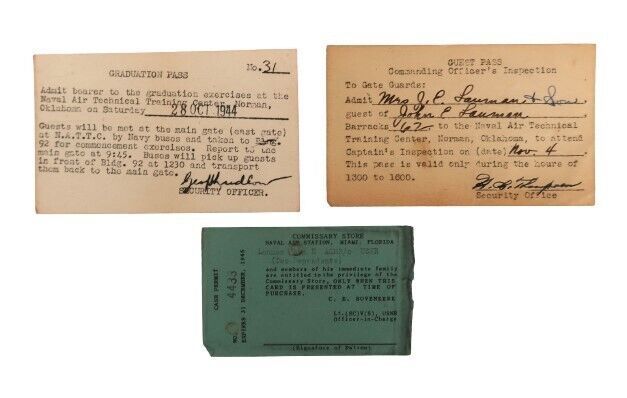 GRADUATION PASS
No. 31
Admit bearer to the graduation exercises at the
Naval Air Technical Training Center, Norman,
Oklahoma on Saturday
28 OCT 1944
Guests will be met at the main gate (east gate)
at N.A.T.T.C. by Navy buses and taken to Bldg.
92 for commencement exercises. Report to the
main gate at 9:45. Buses will pick up guests
in front of Bldg. 92 at 1230 and transport
them back to the main gate.
SECURITY OFFICER.
GUEST PASS
Commanding Officer's Inspection
To Gate Guards:
Admit Mrs J. C. Lauman & Son
guest of John C Lauman
Barracks 62 to the Naval Air Technical
Training Center, Norman, Oklahoma, to attend
Captain's Inspection on (date) Nov. 4.
This pass is valid only during the hours of
1300 to 1600.
Security Office
COMMISSARY STORE
NAVAL AIR STATION, MIAMI, FLORIDA
USNR
(Two Dependents)
and members of his immediate family
are entitled to the privilege of the
Commissary Store, ONLY WHEN THIS
CARD IS PRESENTED AT TIME OF
PURCHASE.
C. E.
Lt.(SC)V(S), USNR
Officer-in-Charge
(Signature of Patron)
CASH PERMIT
NO. 4433
EXPIRES 31 DECEMBER, 1945